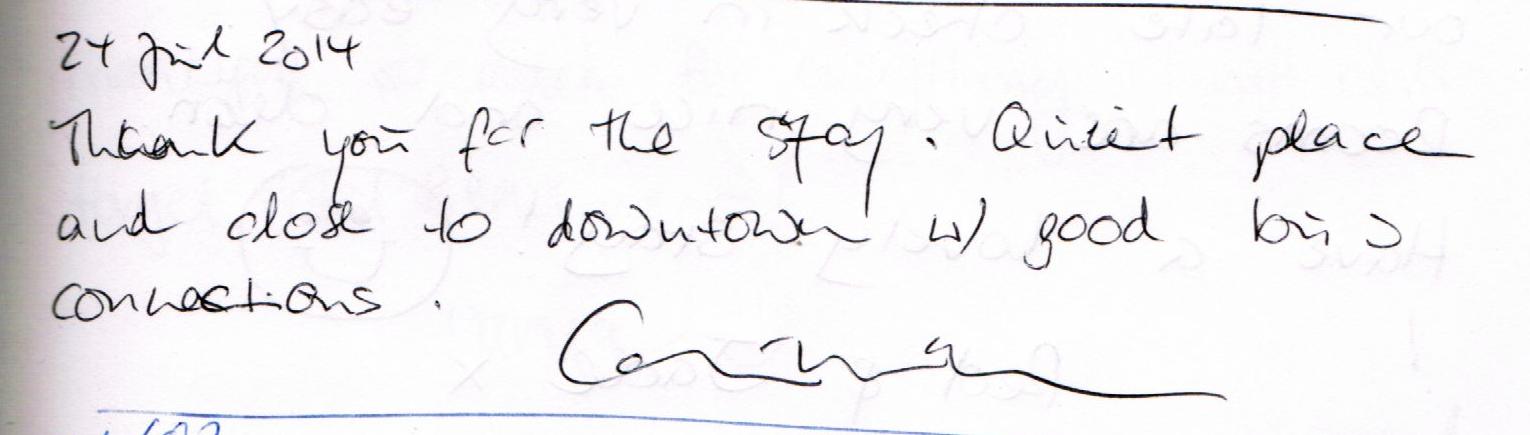 24 Jul 2014
Thank you for the stay. Quiet place
and close to downtown w/ good bus
connections.